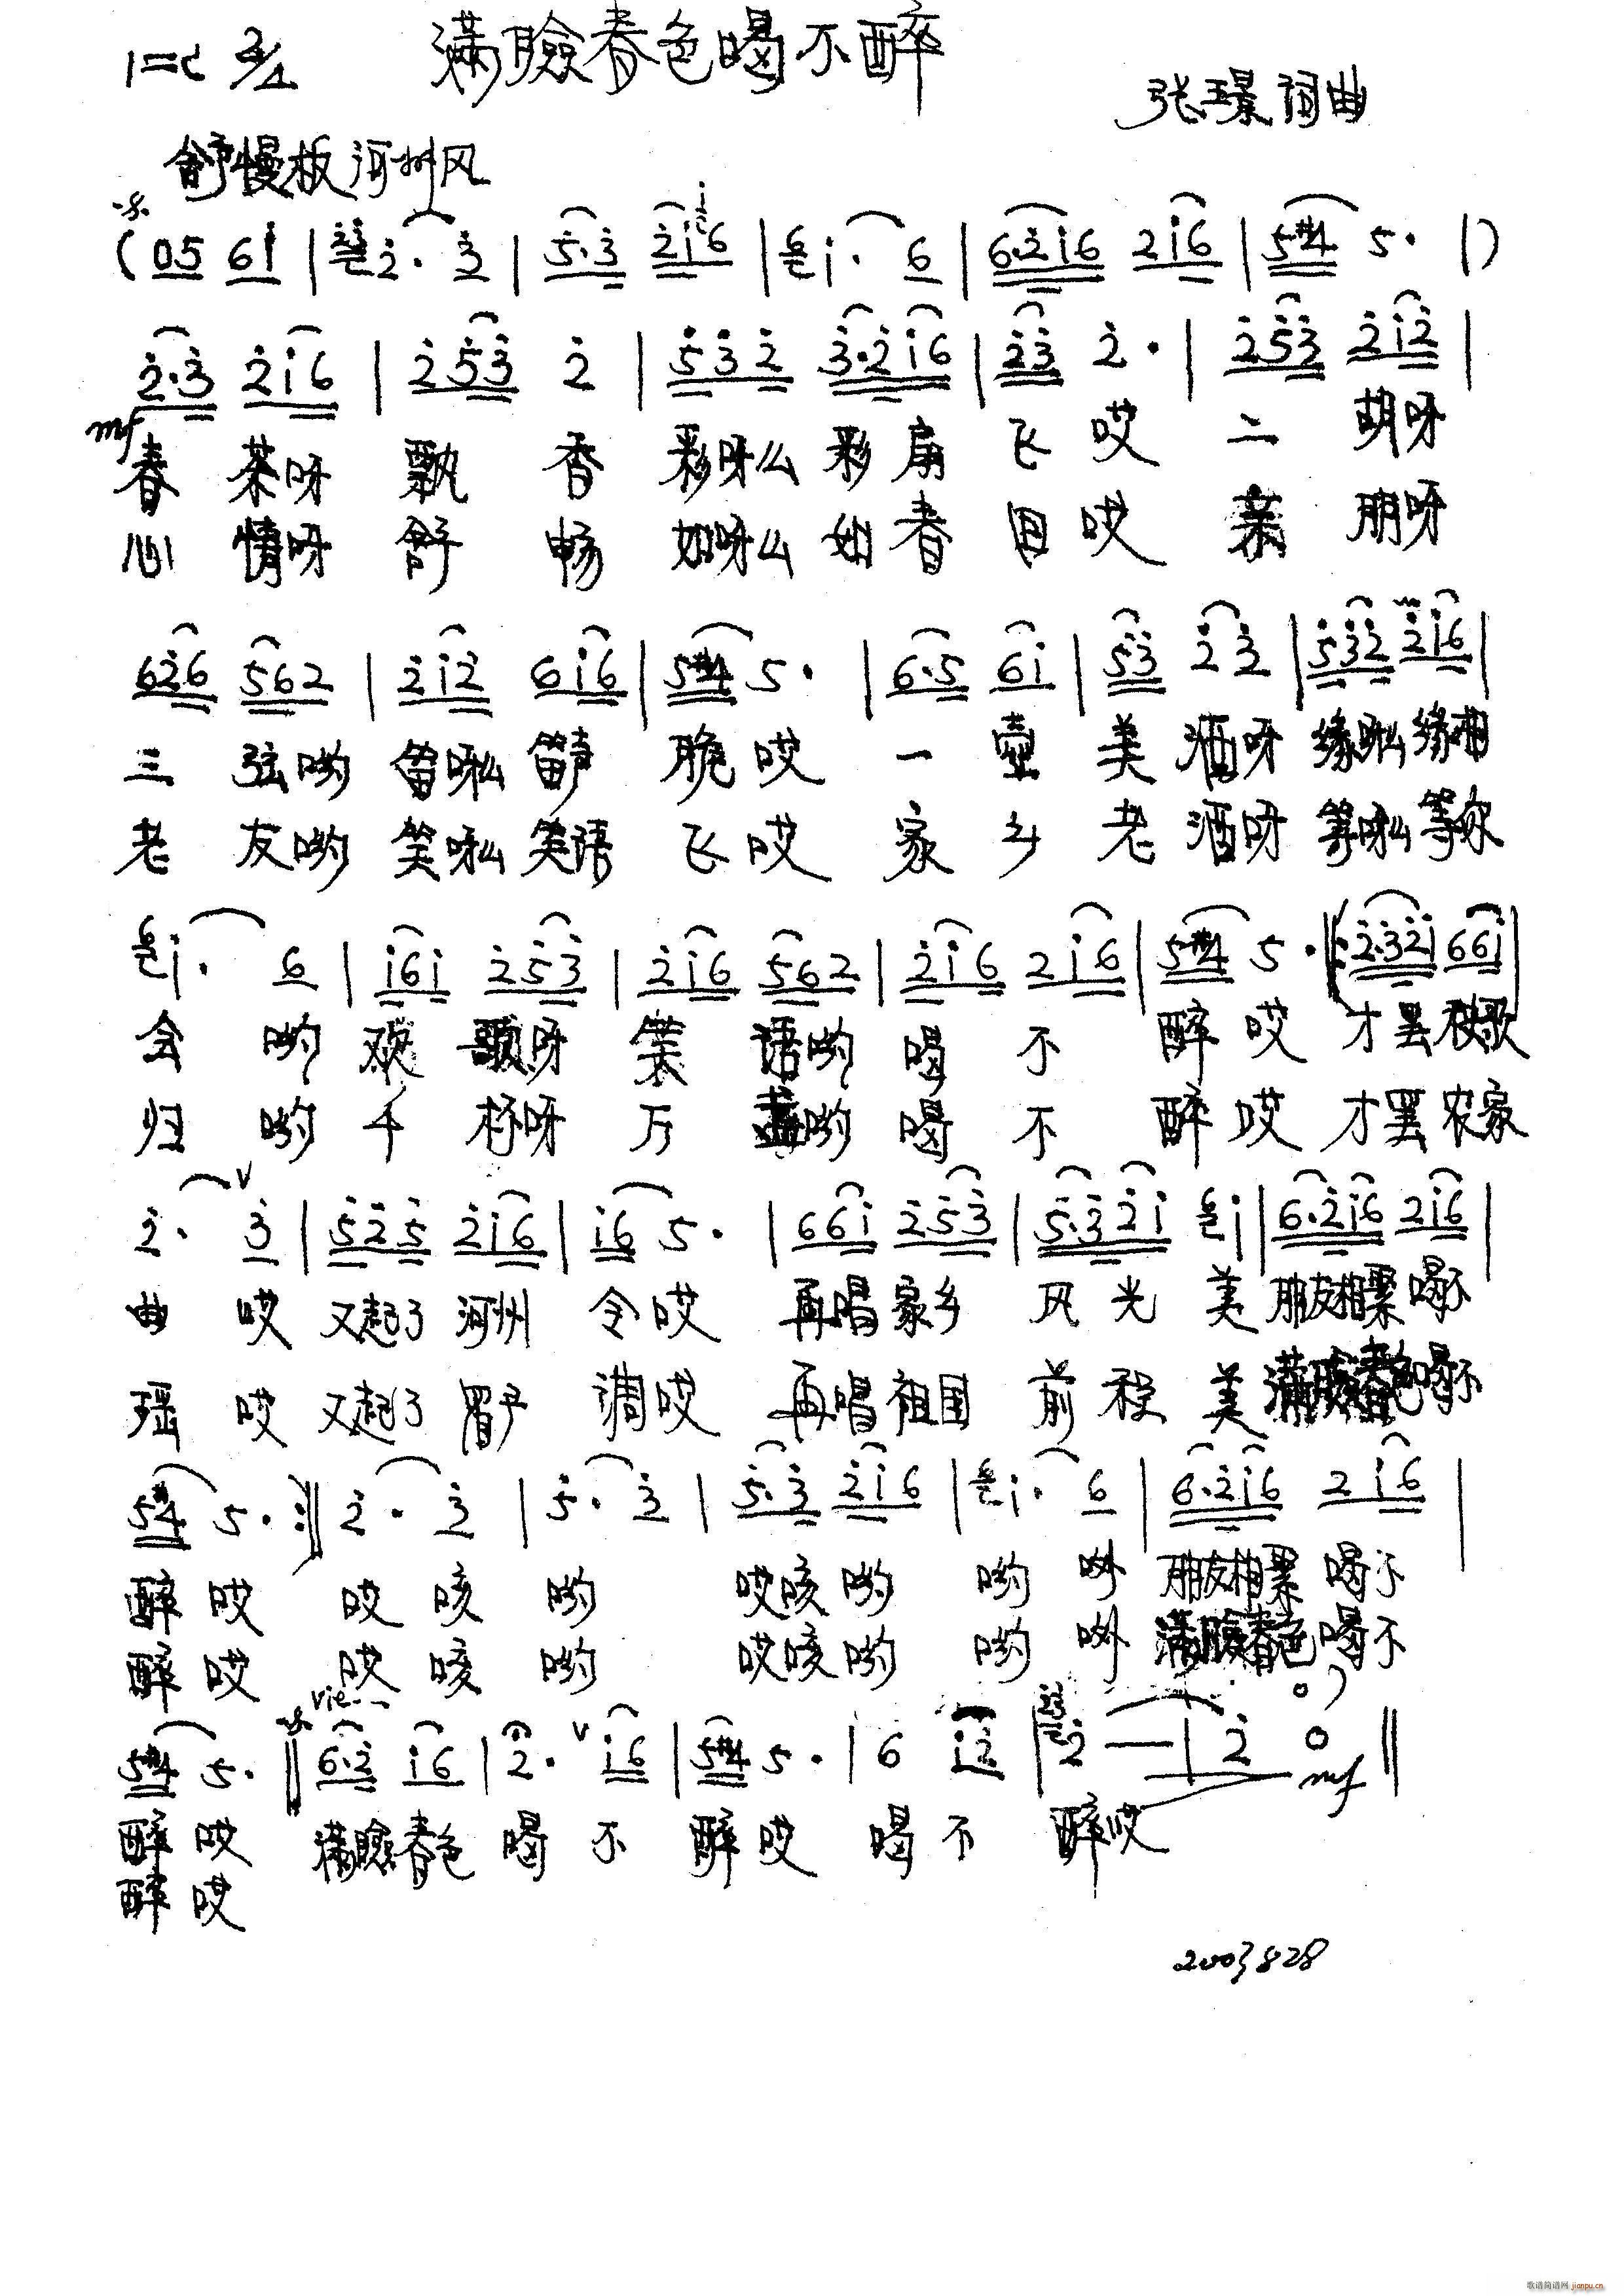 满脸春色喝不醉
1=C 2/4
张璟词曲
舒慢板 河州风
(05 6i | 2· 3 | 5·3 2i6 | i· 6 | 6·2i6 2i6 | 5#4 5· |)
2·3 2i6 | 253 2 | 532 3·2i6 | 23 2· | 253 2i2 |
mf
春 茶呀 飘 香 彩呀么 彩扇 飞 哎 二 胡呀
心 情呀 舒 畅 如呀么 如春 回 哎 亲 朋呀
626 562 | 2i2 6i6 | 5#4 5· | 6·5 6i | 53 23 | 532 2i6 |
三 弦哟 笛呀么 笛声 脆 哎 一 壶 美 酒呀 缘呀么 缘相
老 友哟 笑呀么 笑语 飞 哎 家 乡 老 酒呀 等呀么 等你
6 i· 6 | i6i 253 | 2i6 562 | 2i6 2i6 | 5#4 5· |: 2·32i 66i |
会 哟 欢 歌呀 笑 语哟 喝 不 醉 哎 才罢 秧歌
归 哟 千 杯呀 万 盏哟 喝 不 醉 哎 才罢 农家
2· v 3 | 525 2i6 | i6 5· | 66i 253 | 5·32i 6 i | 6·2i6 2i6 |
曲 哎 又起了 河州 令 哎 再唱 家乡 风 光 美 朋友相聚 喝不
瑶 哎 又起了 调 哎 再唱 祖国 前 程 美 满脸春色 喝不
5#4 5· :| 2· 3 | 5· 3 | 5·3 2i6 | 6 i· 6 | 6·2i6 2i6 |
醉 哎 哎 咳 哟 哎咳 哟 哟 呀 朋友相聚 喝不
醉 哎 哎 咳 哟 哎咳 哟 哟 呀 满脸春色 喝不
5#4 5· || 6·2 i6 | 2· v i6 | 5#4 5· | 6 i2 | 2 — | 2 0 ||
mf
醉 哎 满脸春色 喝 不 醉 哎 喝 不 醉哎
醉 哎
2003 8 28
歌谱简谱网 jianpu.cn